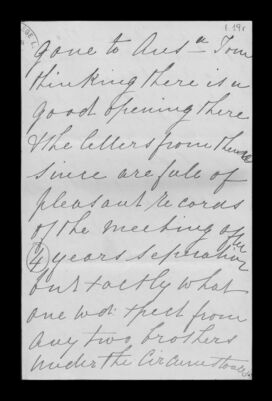 f. 19r
gone to Ausª Tom
thinking there is a
good opening there
& the letters from them
since are full of
pleasant records
of the meeting after
4 years seperation
but xactly what
one wd. xpect from
any two brothers
under the Circumstances